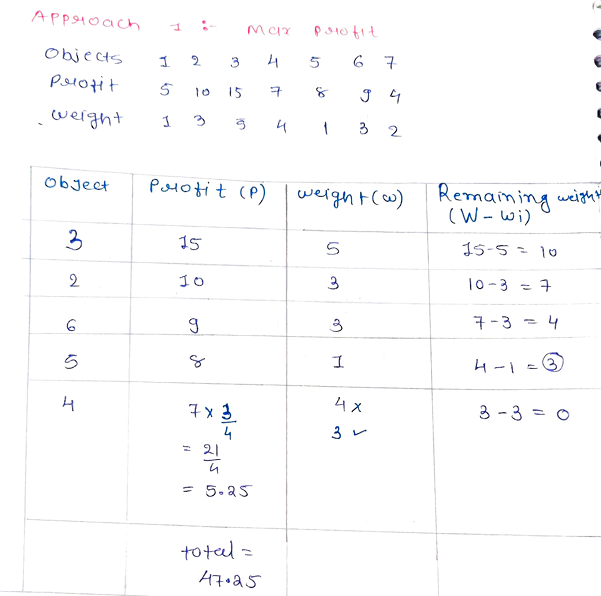 Approach 1 :- Max profit
Objects 1 2 3 4 5 6 7
Profit 5 10 15 7 8 9 4
weight 1 3 5 4 1 3 2
Object Profit (P) weight (w) Remaining weight
(W - wi)
3 15 5 15-5 = 10
2 10 3 10-3 = 7
6 9 3 7-3 = 4
5 8 1 4-1 = 3
4 7 x 3/4 4 x 3-3 = 0
3 ✓
= 21/4
= 5.25
total =
47.25